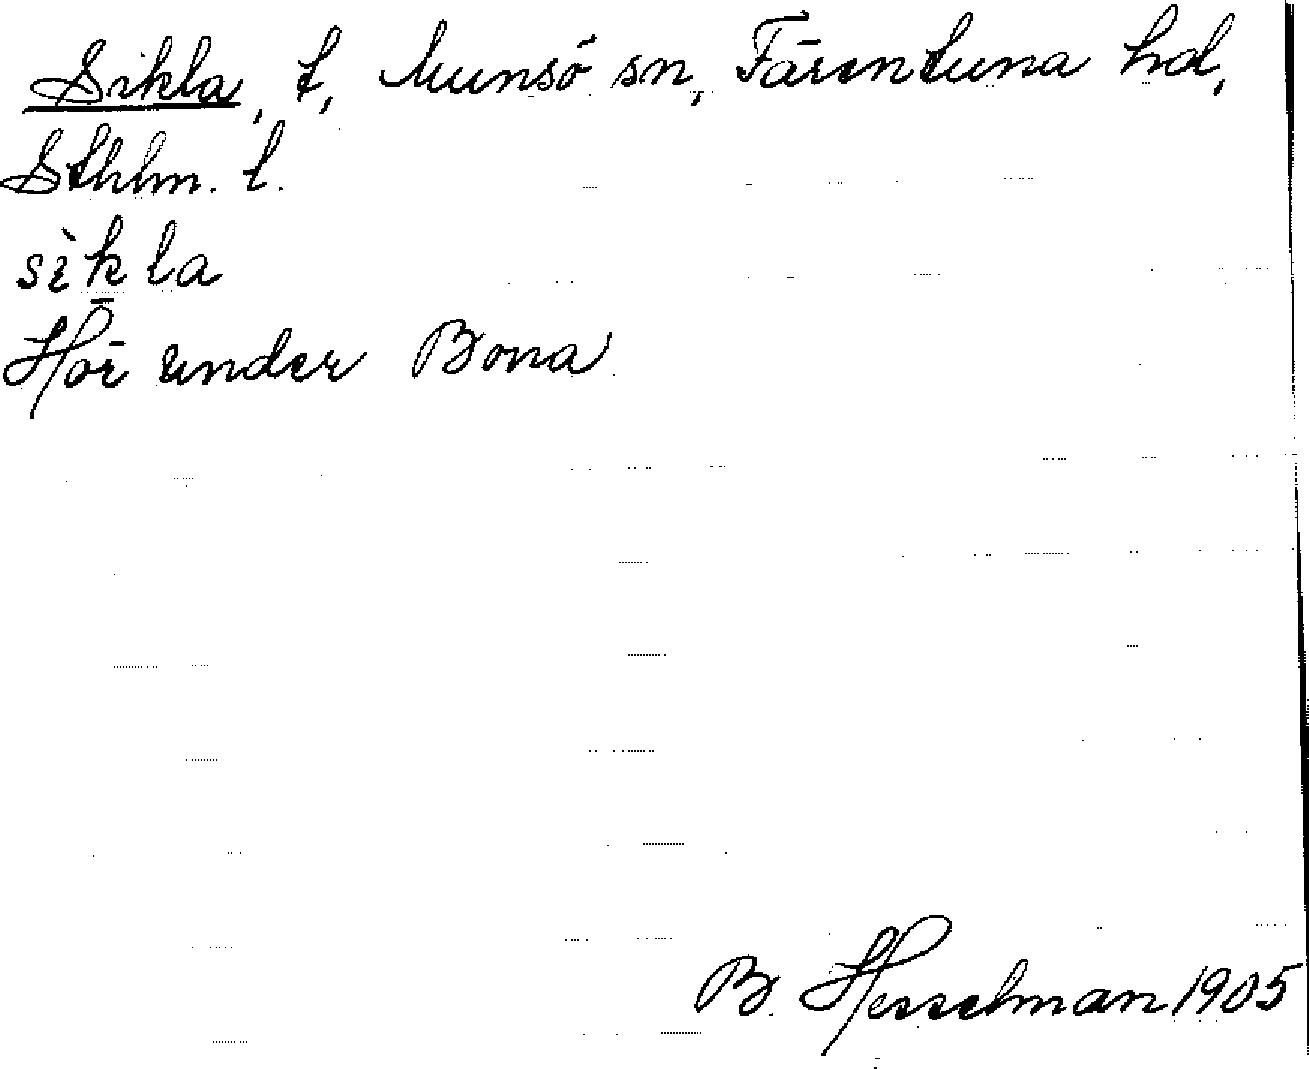 Sikla, t, Munsö sn, Färentuna hd,
Sthlm. l.
sìk̠la
Hör under Bona
B. Hesselman 1905